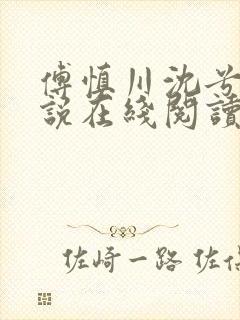 傅慎川沈兮
说在綫閱讀
佐崎一路 佐伯